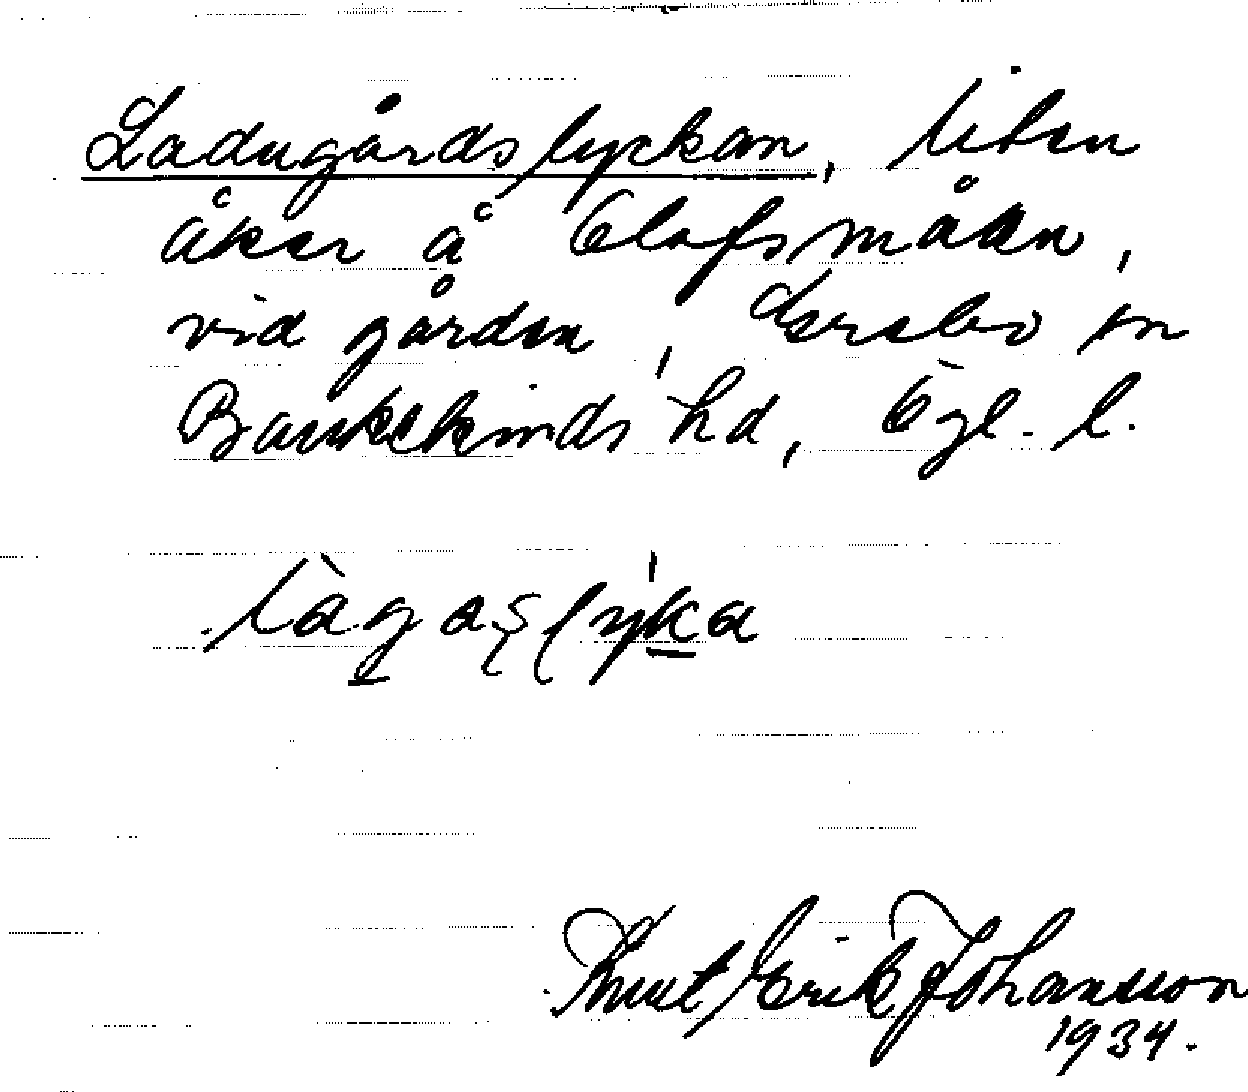 Ladugårdslyckan, liten
åker å Olofsmåln,
vid gården, Lersbo sn
Bankekinds hd, Ögl. l.
làgaslyka
Knut Erik Johansson
1934.